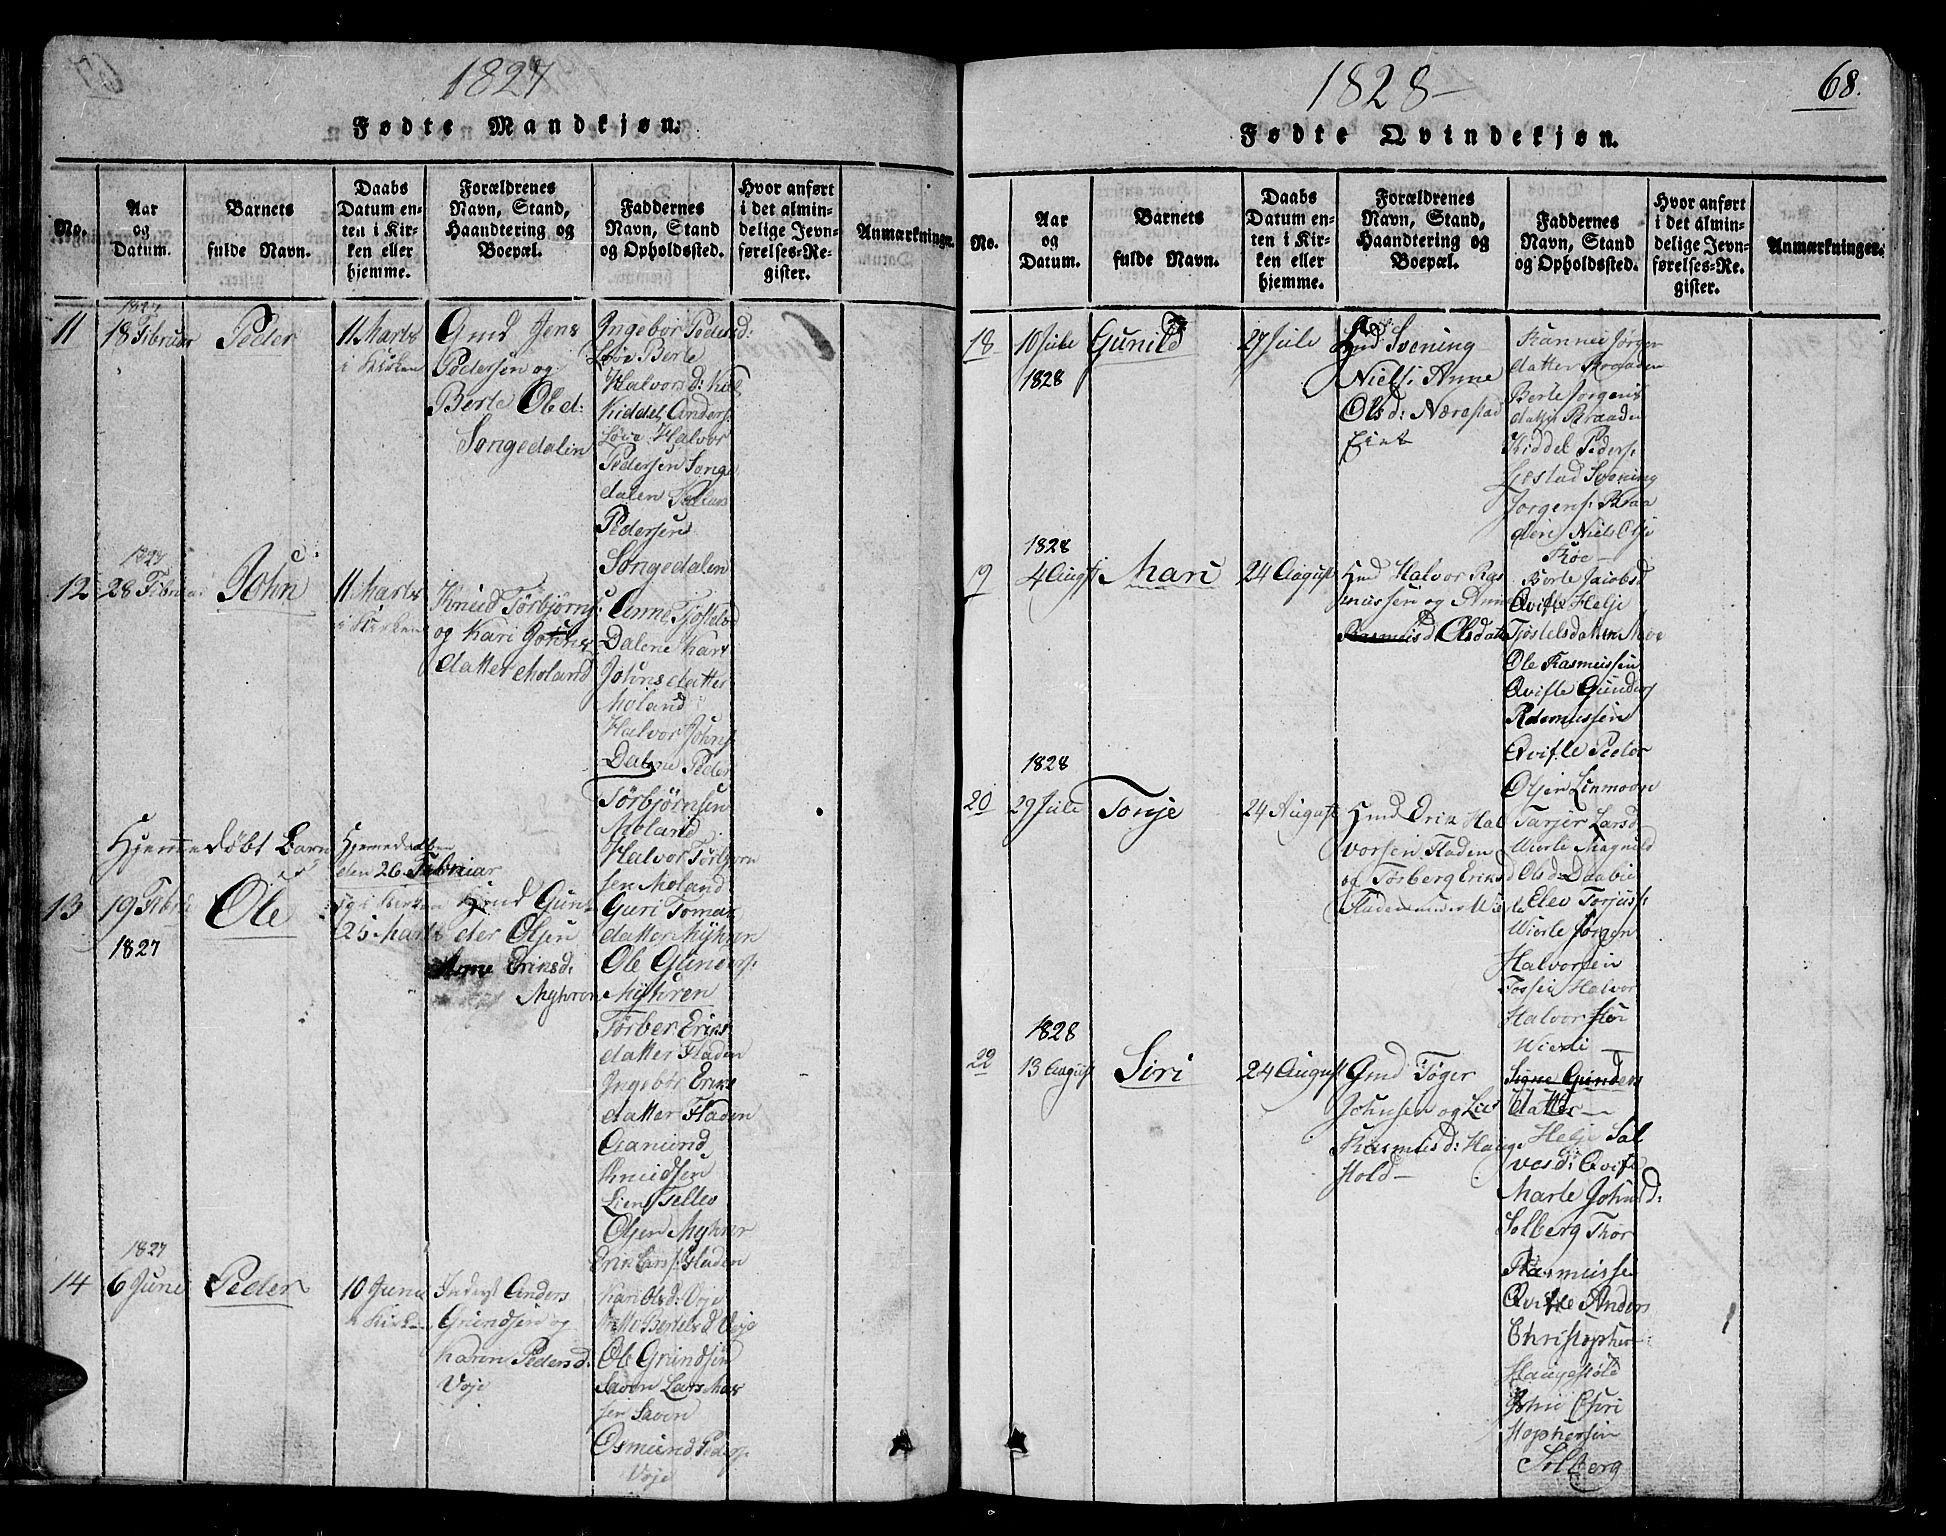 1827
Fødte Mandkjøn.
No.
Aar
og
Datum.
Barnets
fulde Navn.
Daabs
Datum en-
ten i Kir-
ken eller
hjemme.
Forældrenes
Navn, Stand,
Haandtering og
Boepæl.
Faddernes
Navn, Stand
og Opholdssted.
Hvor anført
i det almin-
delige Jevn-
førelses-Re-
gister.
Anmærkninger.
11
1827
18 Februar
Peder
11 Marts
i Kirken
Gmd Jens
Pedersen og
Berte Olsd:
Songedalen
Ingebor Pedersd:
Løve Berte
Halvorsd:
Kiddel Anders
Løve Halvor
Pedersen Songe
dalen
Pedersen
Songedalen
12
1827
28 Februar
John
11 Marts
i Kirken
Knud Torbjørns
og Kari Johns
datter Moland
Anne Tjostelsd
Dalene Kari
Johnsdatter
Moland
Halvor Johns
Dalene Peder
Torbjørnsen
Moland
Halvor Torbjørn
sen Moland
Hjemmedøbt Barn
13
19 Febr
1827
Ole
Hjemmedøbt
den 26 Februar
i Kirken
25 Marts
Gun
der Olsen
Anne Eriksd:
Myhren
Guri Tomas
datter Myhren
Ole Gunders:
Myhren
Torber Eriks
datter Fladen
Ingebør Eriks
datter Fladen
Aamund
Knudsen
Lien Tellev
Olsen Myhren
Erik Lars: Fladen
14
1827
6 Juni
Peder
10 Juni
i Kirke
Inderst Anders
Grundsen og
Karen Pedersd:
Voje
Kari Olsd: Voje
Bertelsd Voje
Ole Grundsen
Saven Lars
sen Saven
Osmund Peders
Voje
1828
68.
Fødte Qvindekjøn.
No.
Aar
og
Datum.
Barnets
fulde Navn.
Daabs
Datum en-
ten i Kir-
ken eller
hjemme.
Forældrenes
Navn, Stand,
Haandtering og
Boepæl.
Faddernes
Navn, Stand
og Opholdssted.
Hvor anført
i det almin-
delige Jevn-
førelses-Re-
gister.
Anmærkninger.
18
10 Jule
1828
Gunild
27 Jule
Svening
Niels: Anne
Olsd: Nærestad
Rannei Jørgen
datter Braaden
Berte Jørgens
datter Braaden
Kiddel Peders:
Løstad Svening
Jørgens: Braa
den Niels Olse
Roe
19
1828
4 August
Mari
24 August
Halvor Ras
mussen og Anne
Rasmusd Olsdatt
Berte Jacobsd
Qvifte Helje
Tjøstelsdatter Moe
Ole Rasmussen
Qvifte Gunders
Rasmussen
Qvifte Peder
Olsen Linmoen
20
1828
29 Jule
Tonje
24 August
Erik Hal
vorsen Fladen
og Torberg Eriksd
Fladen
Tarjer Larsd
Wierle Magnild
Olsd: Daabu
Elev Torjuss:
Wierle Jørgen
Halvorsen
Fossen Halvor
Halvor
22
1828
13 August
Siri
24 August
Gmd Töger
Johnsen og Liv
Rasmusd: Hauge
Hold
Signe Gunders
datter
Helje Sal
vesd: Qvifte
Marte Johnsd:
Solberg Thor
Rasmusse
Qvifte Anders
Christopher:
Haugeholt
John Chri
stophersen
Solberg